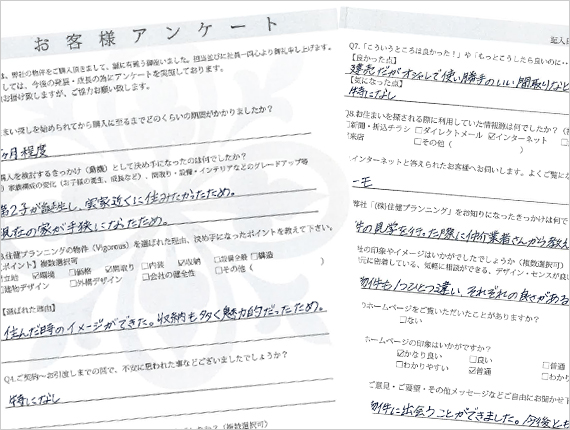 お客様アンケート
弊社の物件をご購入頂きまして、誠に有難う御座いました。担当並びに社員一同心より御礼申し上げます。
しては、今後の発展・成長の為にアンケートを実施しております。
お掛け致しますが、ご協力お願い致します。
まい探しを始められてから購入に至るまでどのくらいの期間がかかりましたか?
ヶ月程度
購入を検討するきっかけ(動機)として決め手になったのは何でしたか?
家族構成の変化(お子様の誕生、成長など)、間取り・設備・インテリアなどのグレードアップ等
第2子が誕生し、実家近くに住みたかったため。
現在の家が手狭になったため。
3.住健プランニングの物件(Vigorous)を選ばれた理由、決め手になったポイントを教えて下さい。
ポイント】複数選択可
立地 ☑環境 □価格 ☑間取り □内装 ☑収納 □設備全般 □構造
□建物デザイン □外構デザイン □会社の健全性 □その他( )
【選ばれた理由】
住んだ時のイメージができた。収納も多く魅力的だったため。
Q4.ご契約~お引渡しまでの間で、不安に思われた事などございましたでしょうか?
特になし
したか?(複数選択可)
記入日
Q7.「こういうところは良かった!」や「もっとこうしたら良いのに・・
【良かった点】
建売だがオシャレで使い勝手のいい間取りなと
【気になった点】
特になし
8.お住まいを探される際に利用していた情報源は何でしたか?(複
新聞・折込チラシ □ダイレクトメール ☑インターネット □
来店 □その他( )
インターネットと答えられたお客様へお伺いします。よくご覧にな
弊社「(株)住健プランニング」をお知りになったきっかけは何で
の見学を行った際に仲介業者さんから教え
社の印象やイメージはいかがでしたでしょうか(複数選択可)
元に密着している、気軽に相談ができる、デザイン・センスが良い
物件も1つひとつ違い、それぞれの良さがある
ホームページをご覧いただいたことがありますか?
□ない
ホームページの印象はいかがですか?
☑かなり良い □良い □普通
□わかりやすい ☑普通 □わか
ご意見・ご要望・その他メッセージなどご自由にお聞かせ下
物件に出会うことができました。今後とも